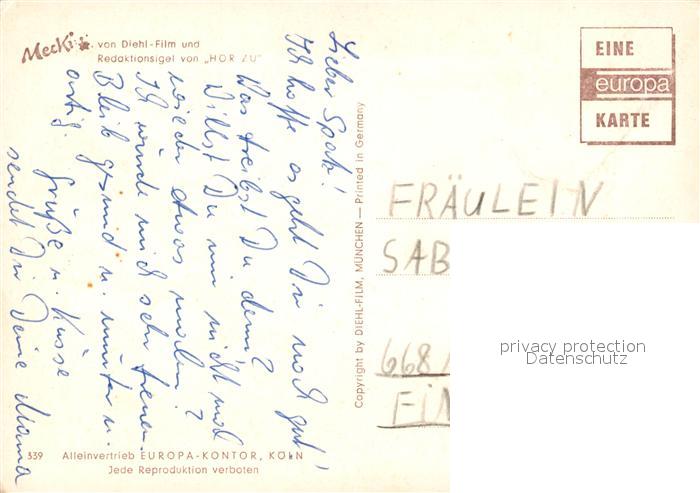 Mecki von Diehl-Film und
Redaktionsigel von „HÖR ZU"
EINE
europa
KARTE
Lieber Spatz!
Ich hoffe es geht Dir noch gut!
Was treibst Du denn?
Willst Du mir nicht mal
wieder etwas malen?
Ich würde mich sehr freuen.
Bleib gesund u. munter u.
artig.
Grüße u. Küsse
sendet Dir Deine Mama
Copyright by DIEHL-FILM, MÜNCHEN — Printed in Germany
FRÄULEIN
SAB
668
EIN
privacy protection
Datenschutz
339 Alleinvertrieb EUROPA-KONTOR, KÖLN
Jede Reproduktion verboten